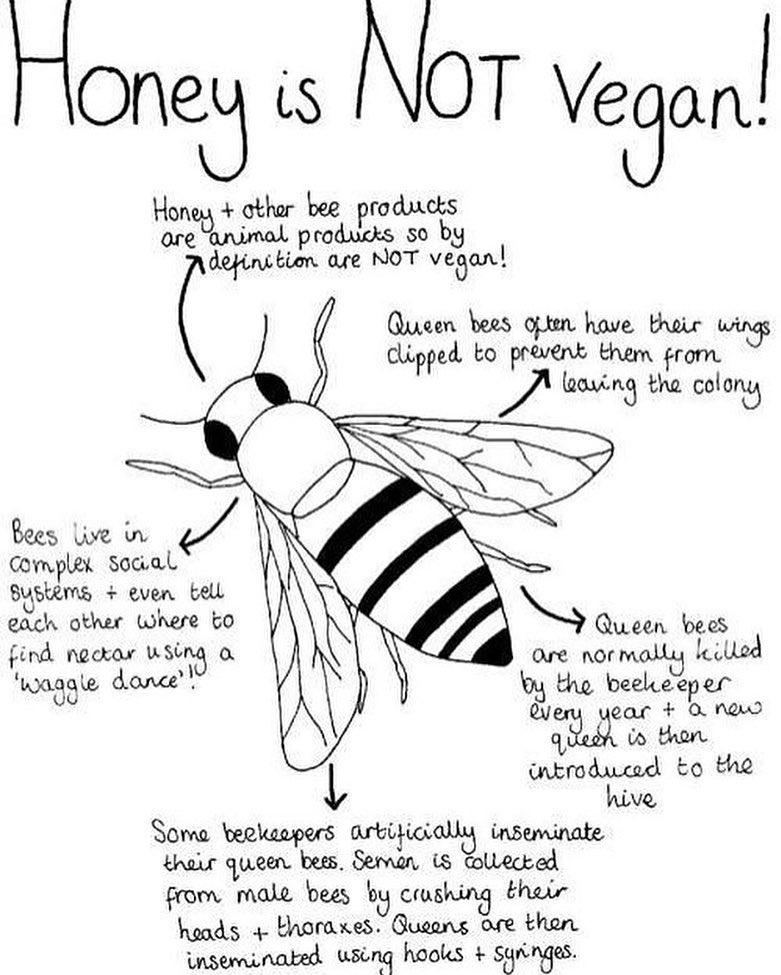 Honey is NOT vegan!
Honey + other bee products
are animal products so by
definition are NOT vegan!
Queen bees often have their wings
clipped to prevent them from
leaving the colony
Bees live in
complex social
systems + even tell
each other where to
find nectar using a
'waggle dance'!
Queen bees
are normally killed
by the beekeeper
every year + a new
queen is then
introduced to the
hive
Some beekeepers artificially inseminate
their queen bees. Semen is collected
from male bees by crushing their
heads + thoraxes. Queens are then
inseminated using hooks + syringes.